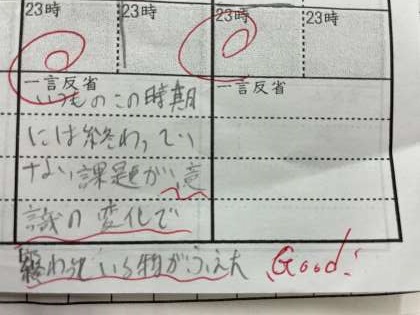 23時 23時 23時 23時
一言反省 一言反省
いつものこの時期
には終わってい
ない課題が意
識の変化で
終わっている物がふえた Good!